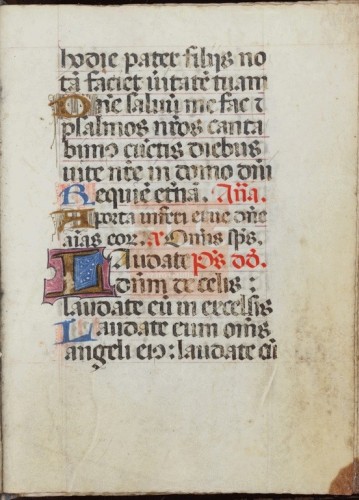 hodie pater filijs no
tā faciet v̄itatē tuam
Dn̄e saluū me fac ⁊
psalmos nr̄os canta
bimo cūctis diebus
uite nr̄e in domo dn̄i
Requiē etn̄ā. An̄a.
A porta inferi erue dn̄e
aīas eor. Om̄is sp̄s.
Laudate Ps dd̄.
dn̄um de celis :
laudate eū in excelsis
Laudate eum om̄s
angeli eiꝰ : laudate eū